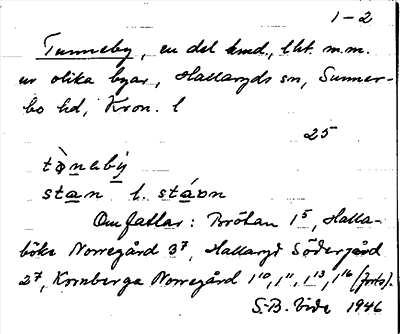 1-2
Tunneby, en del hmd., lht. m.m.
ur olika byar, Hallaryds sn, Sunner-
bo hd, Kron. l
25
tὰnəbẏ
stan l. stáon
Omfattar: Bröhan 1⁵, Halla-
böke Norregård 3⁷, Hallaryd Södergård
2⁷, Kornberga Norregård 1¹⁰, 1¹¹, 1¹³, 1¹⁶ (forts).
S-B. Vide 1946